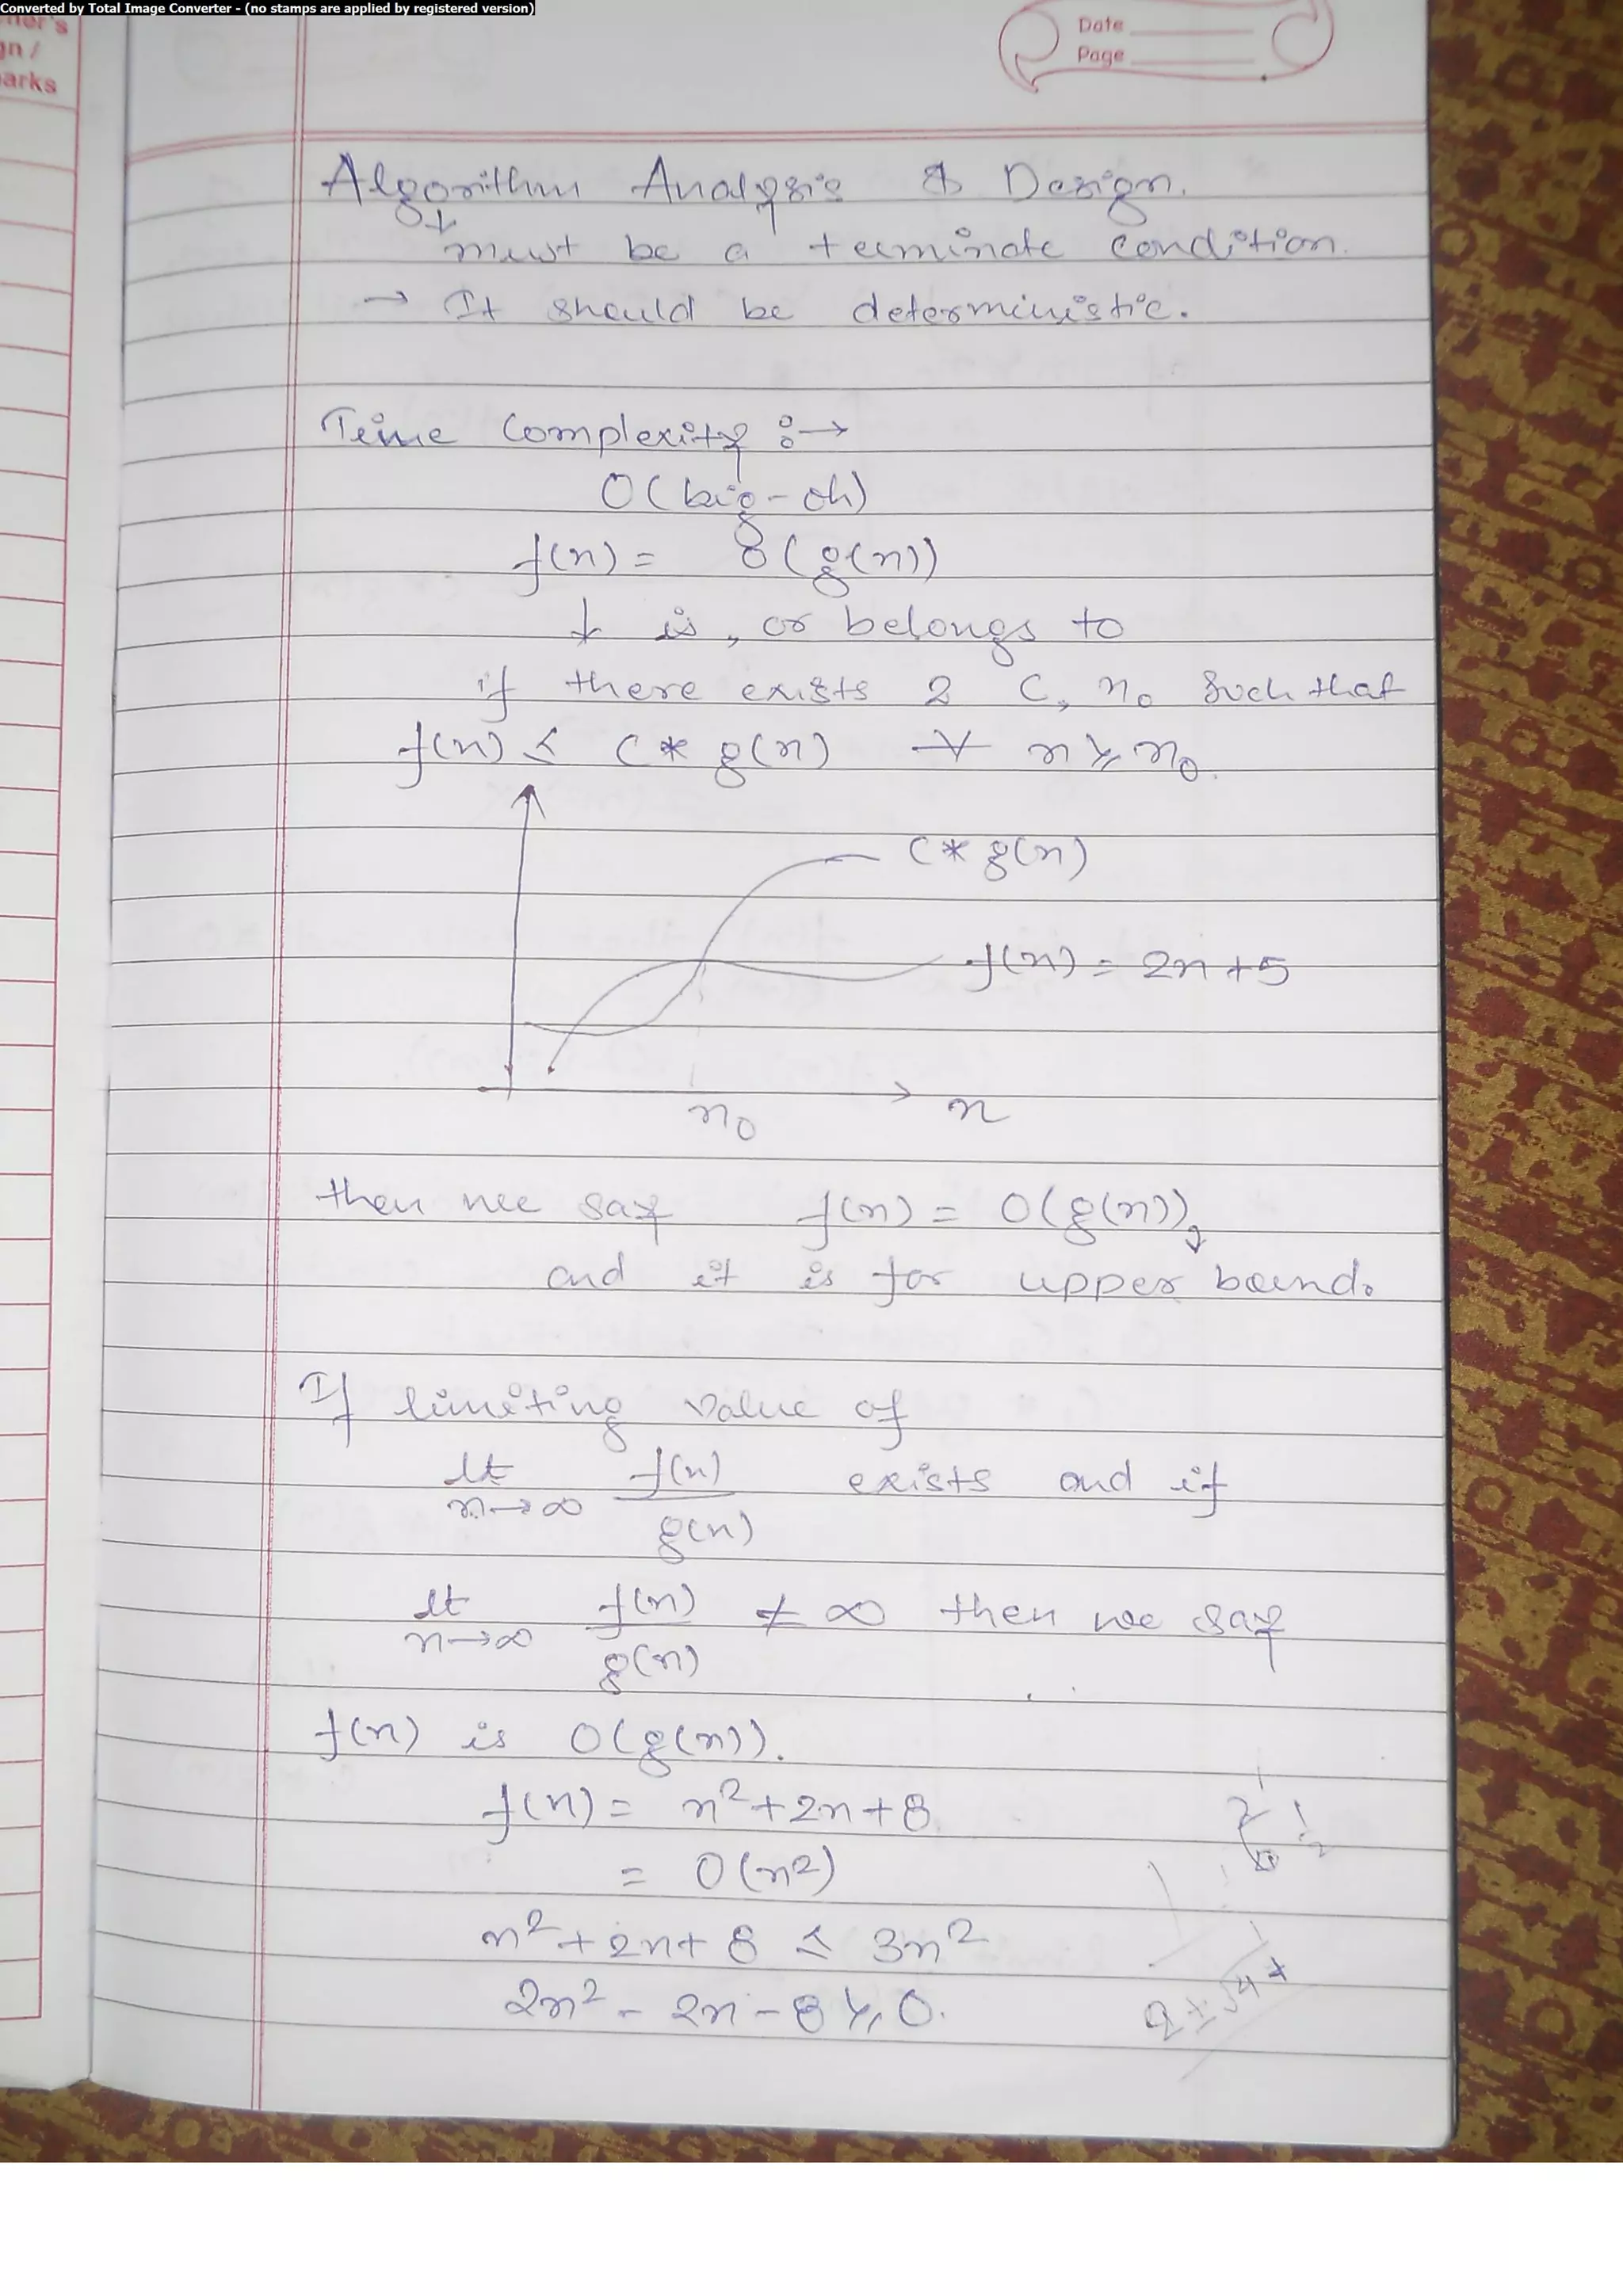 Converted by Total Image Converter - (no stamps are applied by registered version)
gn /
arks
Date
Page
Algorithm Analysis & Design.
must be a terminate condition.
→ It should be deterministic.
Time Complexity :→
O(big-oh)
f(n) = O(g(n))
↓ is, or belongs to
if there exists 2 C, n₀ such that
f(n) ≤ C * g(n) ∀ n ≥ n₀.
C * g(n)
f(n) = 2n + 5
n₀ n
then we say f(n) = O(g(n)),
and it is for upper bound.
If limiting value of
lt n→∞ f(n)/g(n) exists and if
lt n→∞ f(n)/g(n) ≠ ∞ then we say
f(n) is O(g(n)).
f(n) = n² + 2n + 8
= O(n²)
n² + 2n + 8 ≤ 3n²
2n² - 2n - 8 ≥ 0.
2 ± √4 +